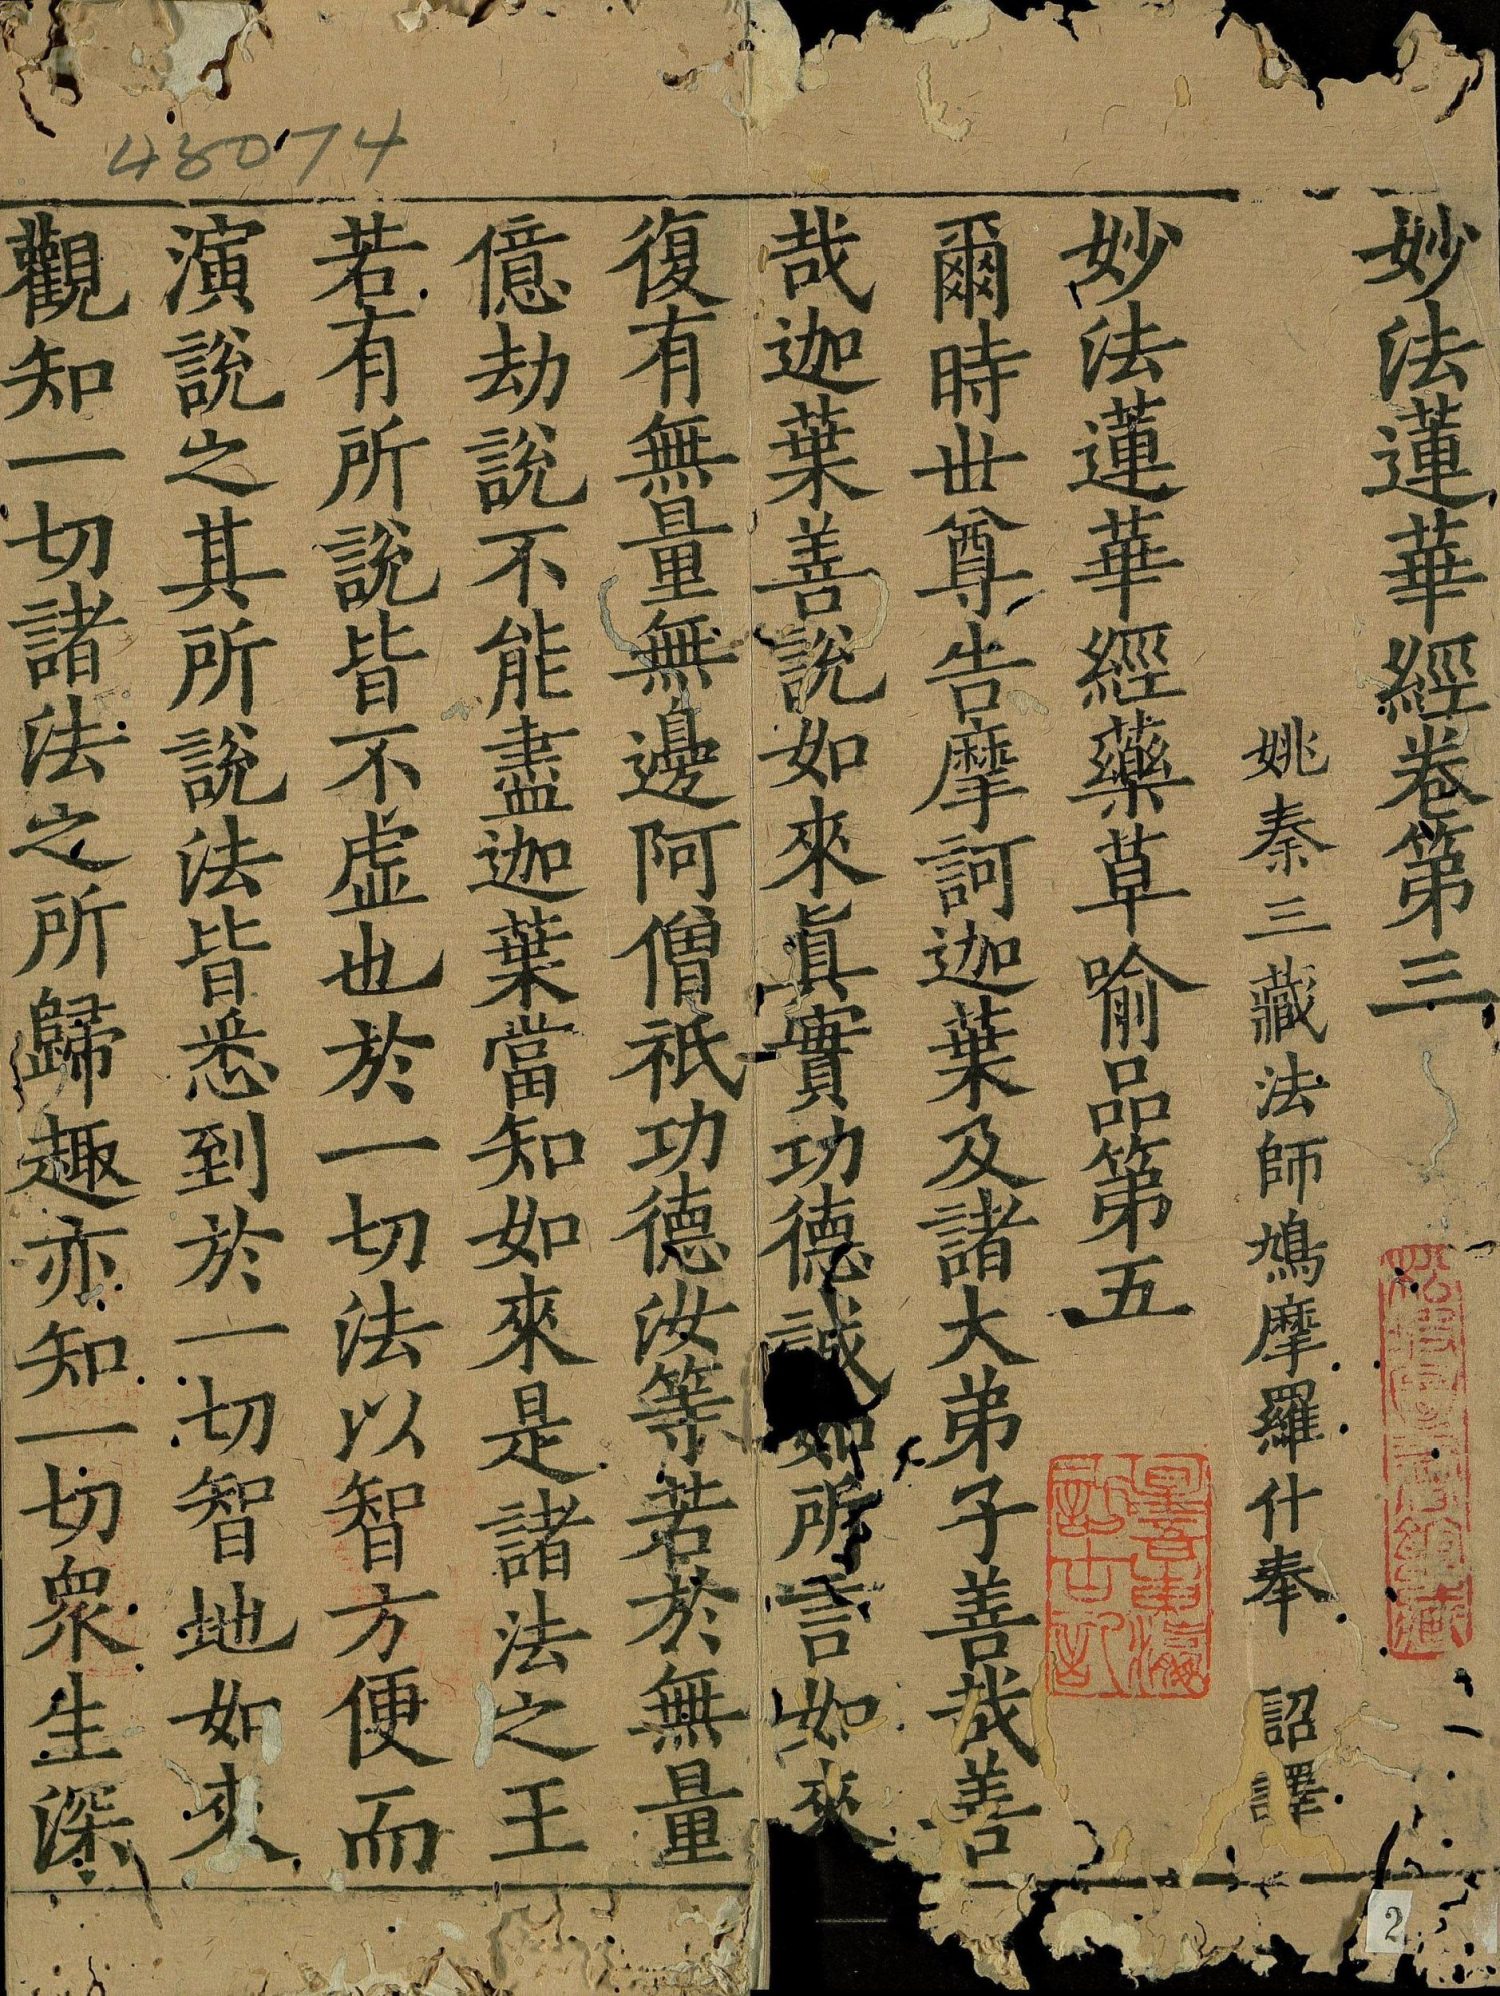 48074
妙法蓮華經卷第三
姚秦三藏法師鳩摩羅什奉 詔譯
妙法蓮華經藥草喻品第五
爾時世尊告摩訶迦葉及諸大弟子善哉善
哉迦葉善說如來眞實功德誠如所言如來
復有無量無邊阿僧祇功德汝等若於無量
億劫說不能盡迦葉當知如來是諸法之王
若有所說皆不虛也於一切法以智方便而
演說之其所說法皆悉到於一切智地如來
觀知一切諸法之所歸趣亦知一切衆生深
2